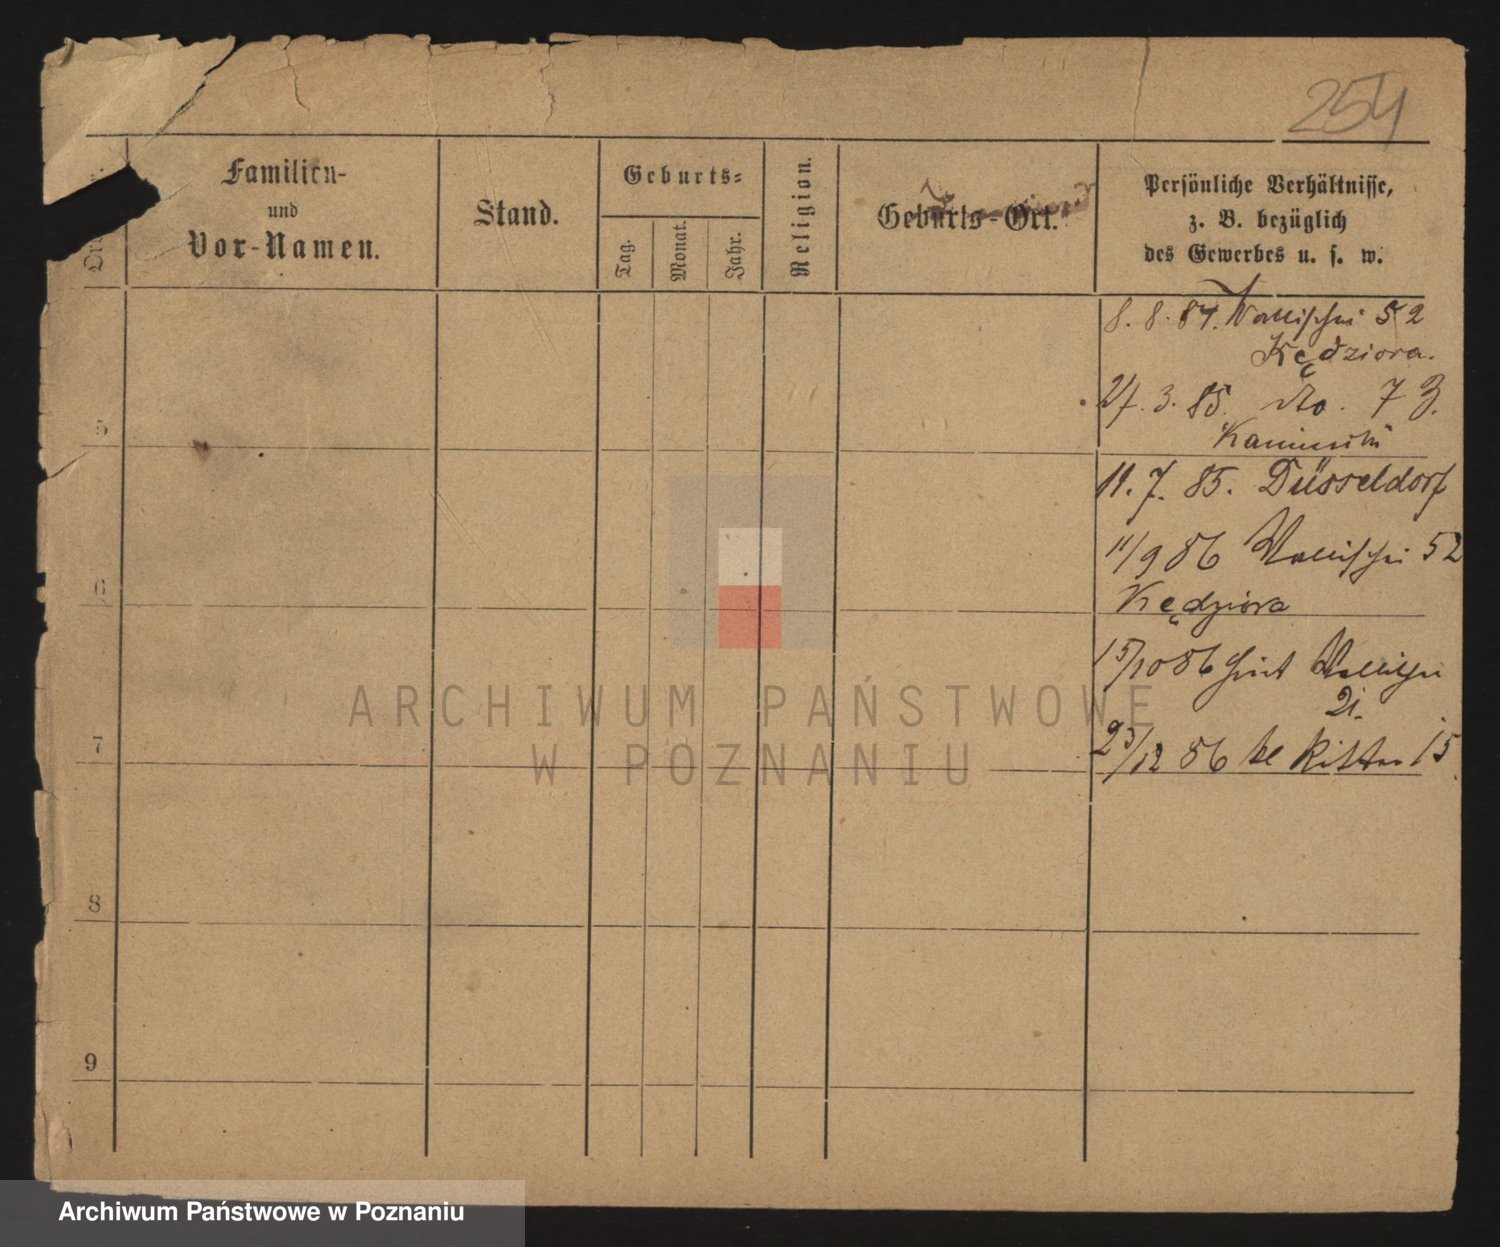 254
Familien-
und
Vor-Namen.
Stand.
Geburts-
Tag.
Monat.
Jahr.
Religion.
Geburts-Ort.
Persönliche Verhältnisse,
z. B. bezüglich
des Gewerbes u. s. w.
8. 8. 84. Wallischei 52
Kędziora.
27. 3. 85. dto. 7
5
11. 7. 85. Düsseldorf
11/9 86 Wallischei 52
6
Kędziora
15/10 86 Wallischei
7
23/12 86 kl Ritter 15
8
9
ARCHIWUM PAŃSTWOWE
W POZNANIU
Archiwum Państwowe w Poznaniu